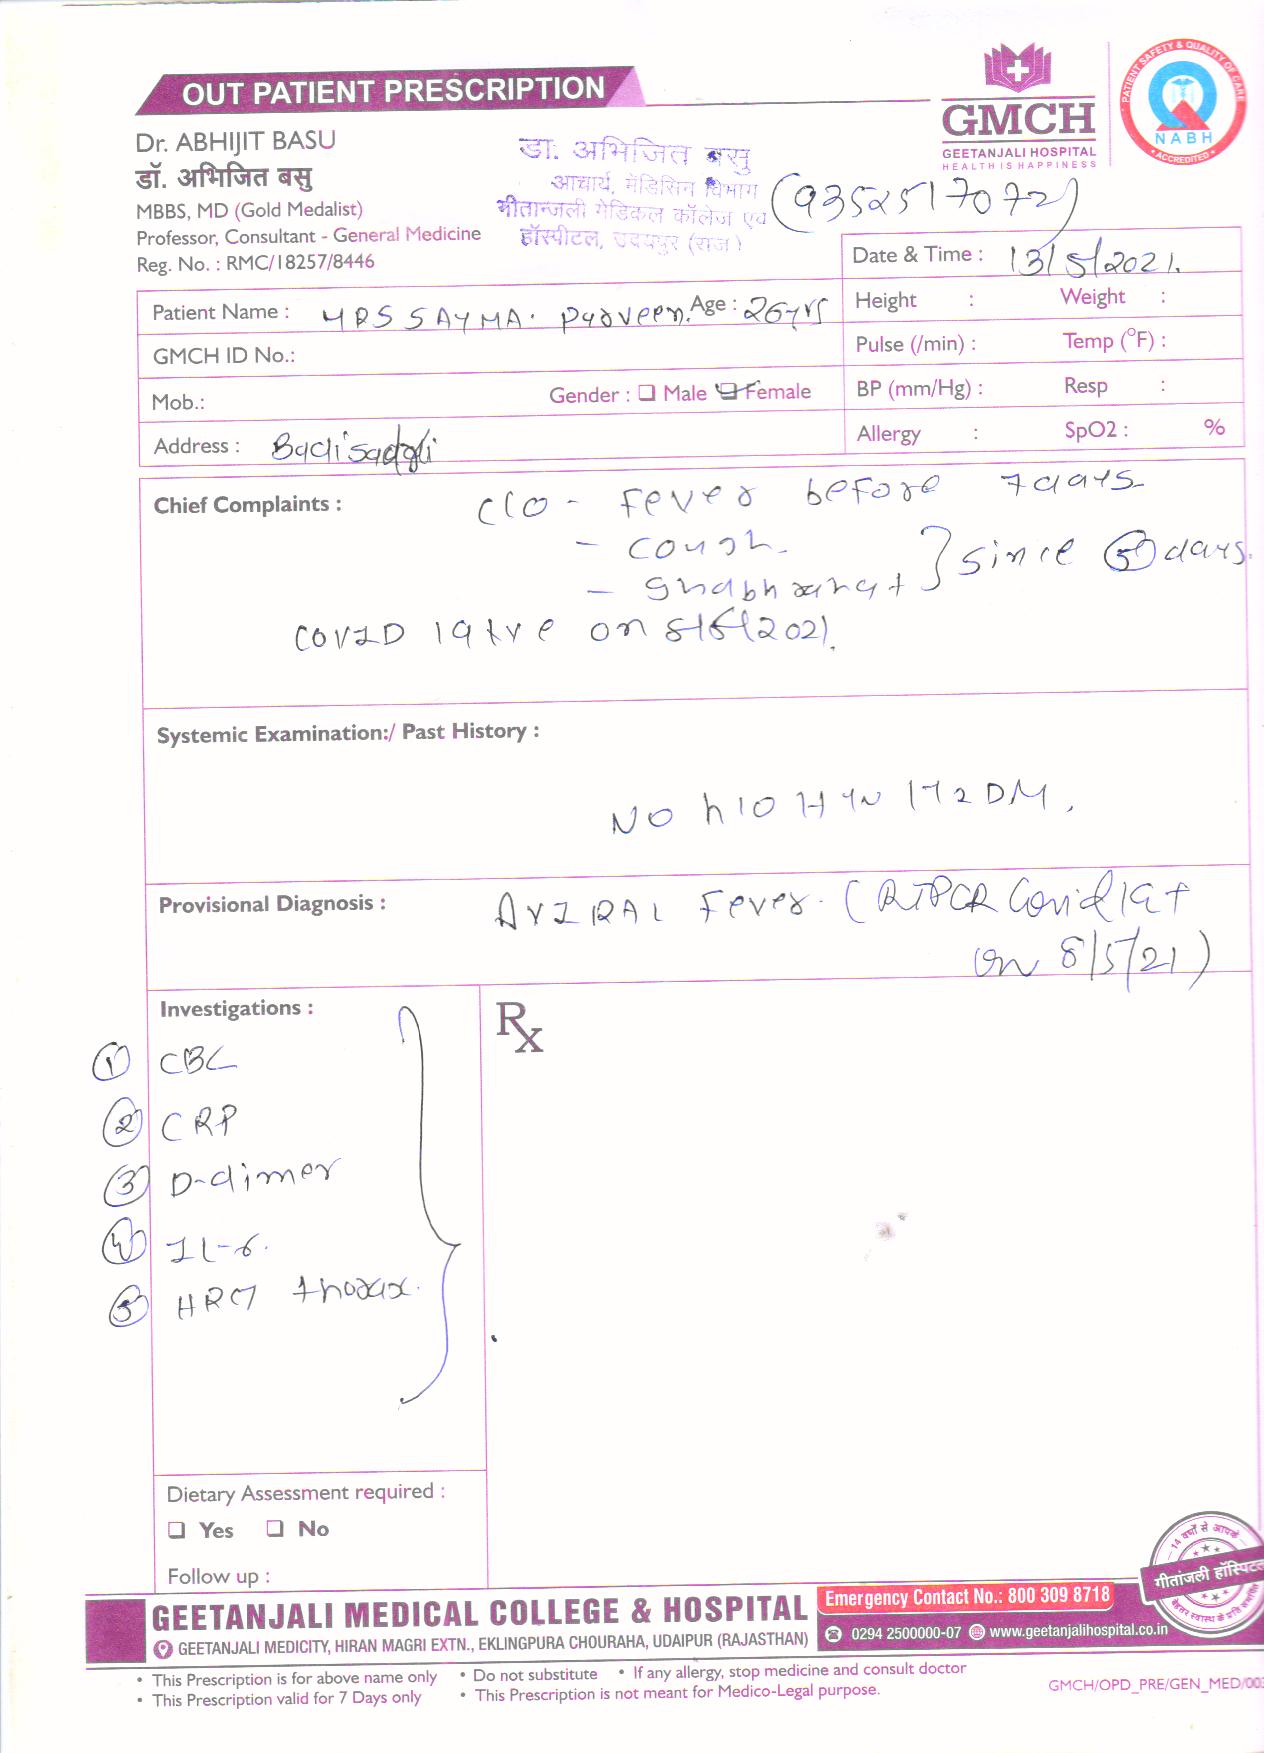 OUT PATIENT PRESCRIPTION
GMCH
GEETANJALI HOSPITAL
HEALTH IS HAPPINESS
PATIENT SAFETY & QUALITY OF CARE
NABH
ACCREDITED
Dr. ABHIJIT BASU
डॉ. अभिजित बसु
MBBS, MD (Gold Medalist)
Professor, Consultant - General Medicine
Reg. No. : RMC/18257/8446
डा. अभिजित बसु
आचार्य, मेडिसिन विभाग
गीतान्जली मेडिकल कॉलेज एवं
हॉस्पीटल, उदयपुर (राज)
(9352517072)
Date & Time : 13/5/2021.
Patient Name : MRS SAYMA. Praveen. Age : 26yrs
Height : Weight :
GMCH ID No.:
Pulse (/min) : Temp (°F) :
Mob.: Gender : Male Female
BP (mm/Hg) : Resp :
Address :
Allergy : SpO2 : %
Chief Complaints : C/O - Fever before 7days
- cough.
- Ghabhrahat } since 5 days.
COVID 19 +ve on 8/5/2021.
Systemic Examination:/ Past History :
NO h/o HTN / T2DM.
Provisional Diagnosis : A VIRAL Fever. (RTPCR Covid 19+
on 8/5/21)
Investigations :
① CBC
② CRP
③ D-dimer
④ IL-6.
⑤ HRCT thorax.
Rx
Dietary Assessment required :
Yes No
Follow up :
14 वर्षों से आपके
गीतांजली हॉस्पिटल
GEETANJALI MEDICAL COLLEGE & HOSPITAL
GEETANJALI MEDICITY, HIRAN MAGRI EXTN., EKLINGPURA CHOURAHA, UDAIPUR (RAJASTHAN)
Emergency Contact No.: 800 309 8718
0294 2500000-07 www.geetanjalihospital.co.in
• This Prescription is for above name only • Do not substitute • If any allergy, stop medicine and consult doctor
• This Prescription valid for 7 Days only • This Prescription is not meant for Medico-Legal purpose.
GMCH/OPD_PRE/GEN_MED/003